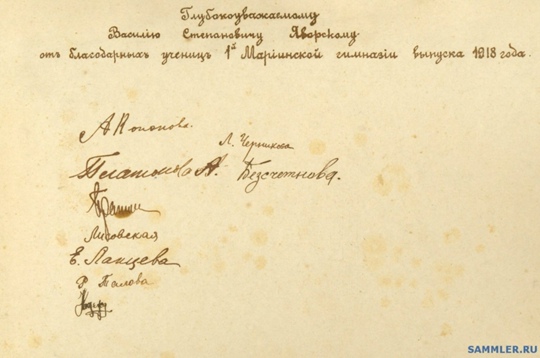 Глубокоуважаемому
Василію Степановичу Яворскому
отъ благодарныхъ ученицъ 1й Маріинской гимназіи выпуска 1918 года.
А Кононова.
Л.
Платонова А. Безсчотнова.
Лисовская
Е. Ланцева
Р Талова
SAMMLER.RU